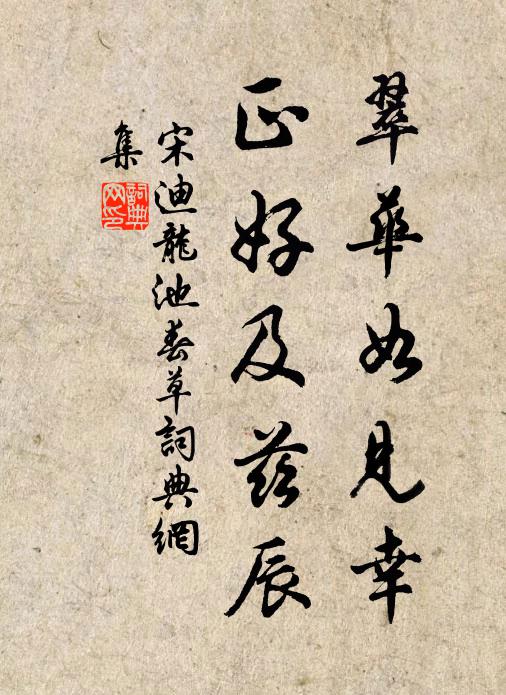 翠華如見幸
正好及茲辰
宋迪龍池春草詞典網
集
詞典網印